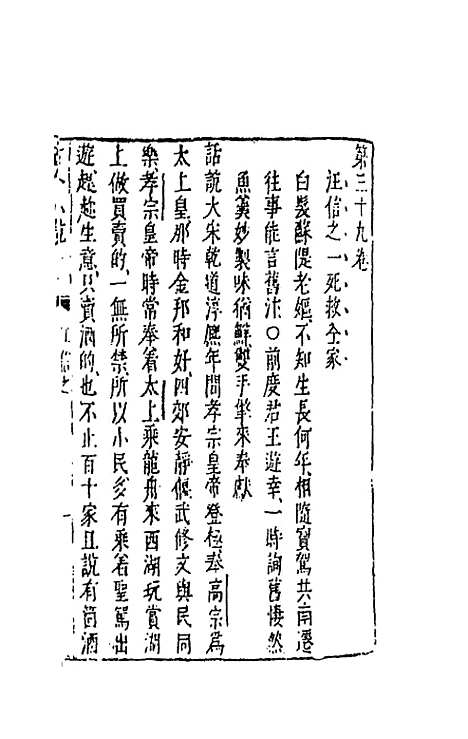 第三十九卷
汪信之一死救全家
白髮蘇隄老嫗、不知生長何年、相隨寶駕共南遷
往事能言舊汴〇前度君王遊幸、一時詢舊悽然
魚羹妙製味猶鮮雙手擎來奉獻
話說大宋乾道淳熈年間孝宗皇帝登極、奉高宗爲
太上皇、那時金邦和好、四郊安靜偃武修文與民同
樂孝宗皇帝時常奉着太上乘龍舟來西湖玩賞湖
上做買賣的、一無所禁、所以小民多有乘着聖駕出
遊趂趂生意、只賣酒的、也不止百十家且說有箇酒